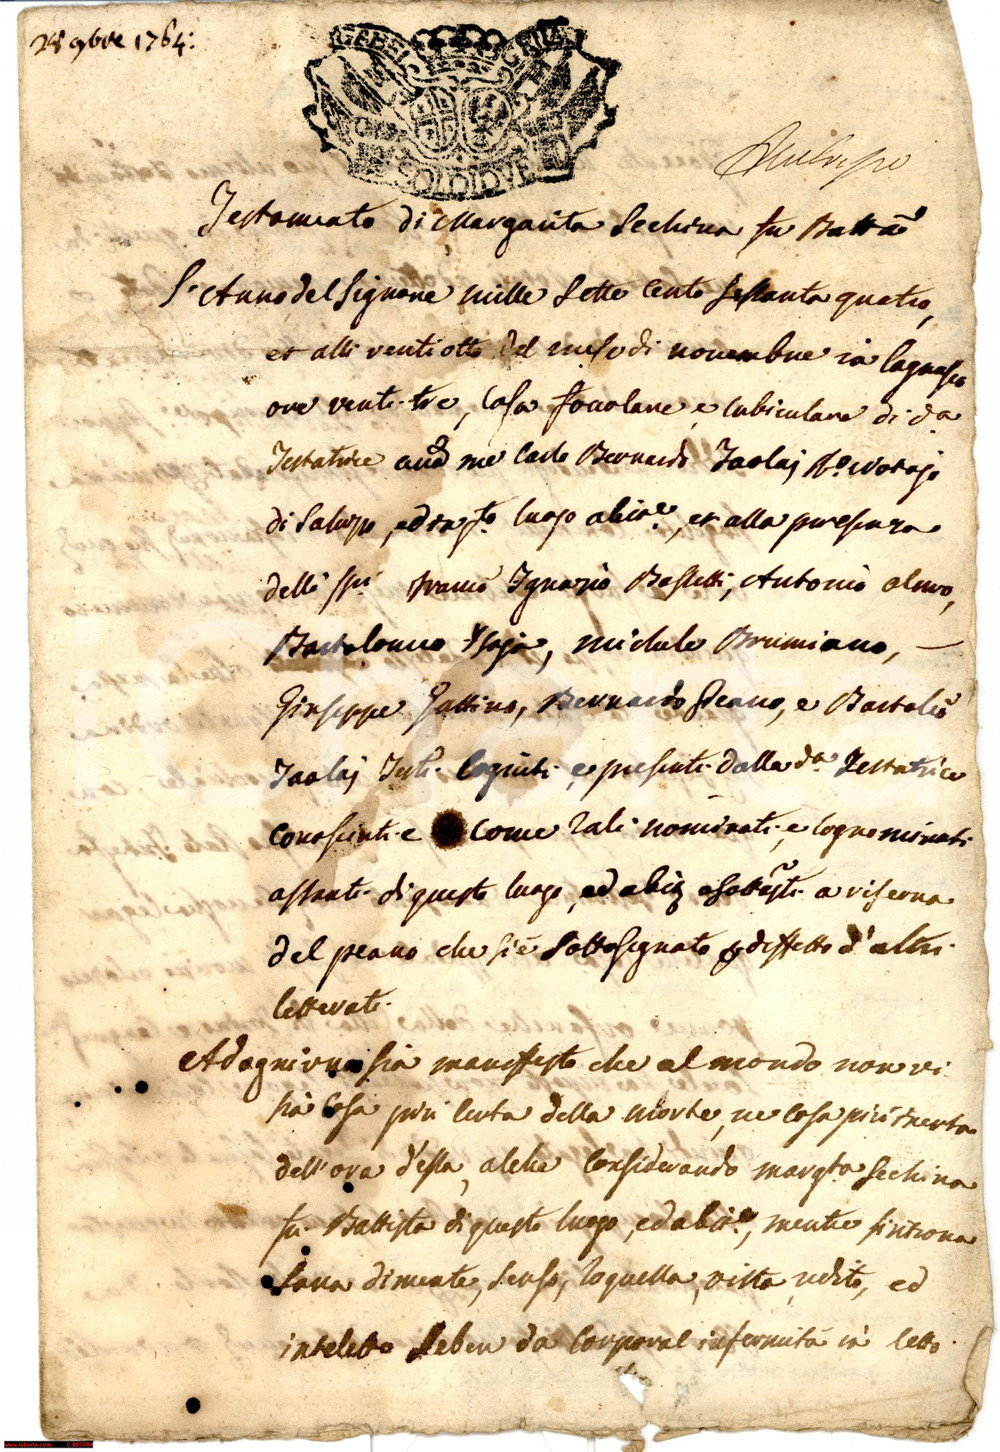 28 9bre 1764:
Testamento di Margarita Sechina fu Battã
L'Anno del Signore mille Sette cento sessanta quatro,
et alli ventiotto del mese di novembre in Lagnasco
ore venti-tre, Casa focolare e cubiculare di da
Testatrice avã me Carlo Bernardo Paolaj Ro. Notajo
di Saluzo, ed in qto luogo abite, et alla presenza
delli sri franco Ignazio Bassetti, Antonio olivo,
Bartolomeo Isaja, michele Brumiano,
Giuseppe Gattino, Bernardo Peano, e Bartoleo
Paolaj Testi Cogniti e presenti dalla da Testatrice
conosciuti e come tali nominati e Cognominati
astanti di questo luogo, ed abit e sottõsti a riserva
del peano che si è Sottosegnato p diffetto d'altri
letterati.
Ad ogniuno sia manifesto che al mondo non vi
sia Cosa più Certa della morte, ne Cosa più incerta
dell'ora d'essa, alche Considerando margta Sechina
fu Battista di questo luogo, ed abite, mentre si ritrova
Sana di mente, senso, loquella, vista, udito, ed
inteletto Seben da Corporal infermità in letto
www.lsborla.com C-063284